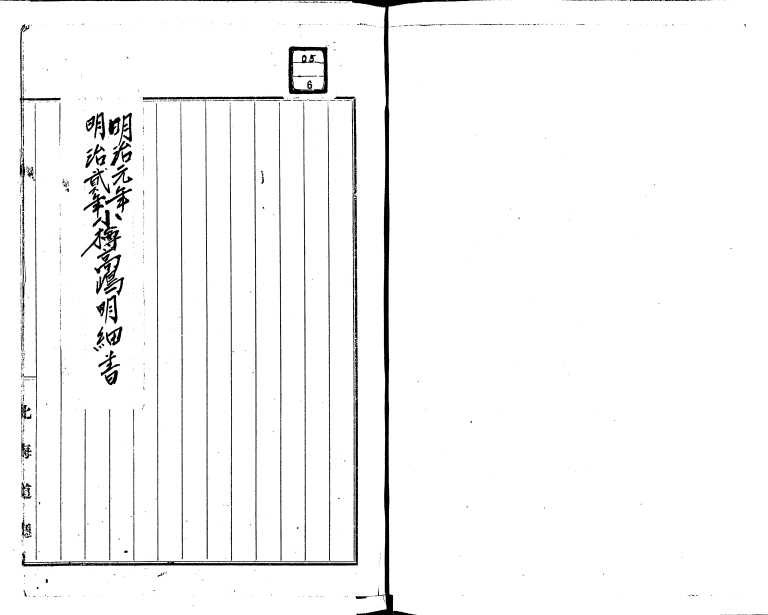 05
6
明治元年
明治弐年
小樽高嶋明細書
北海道